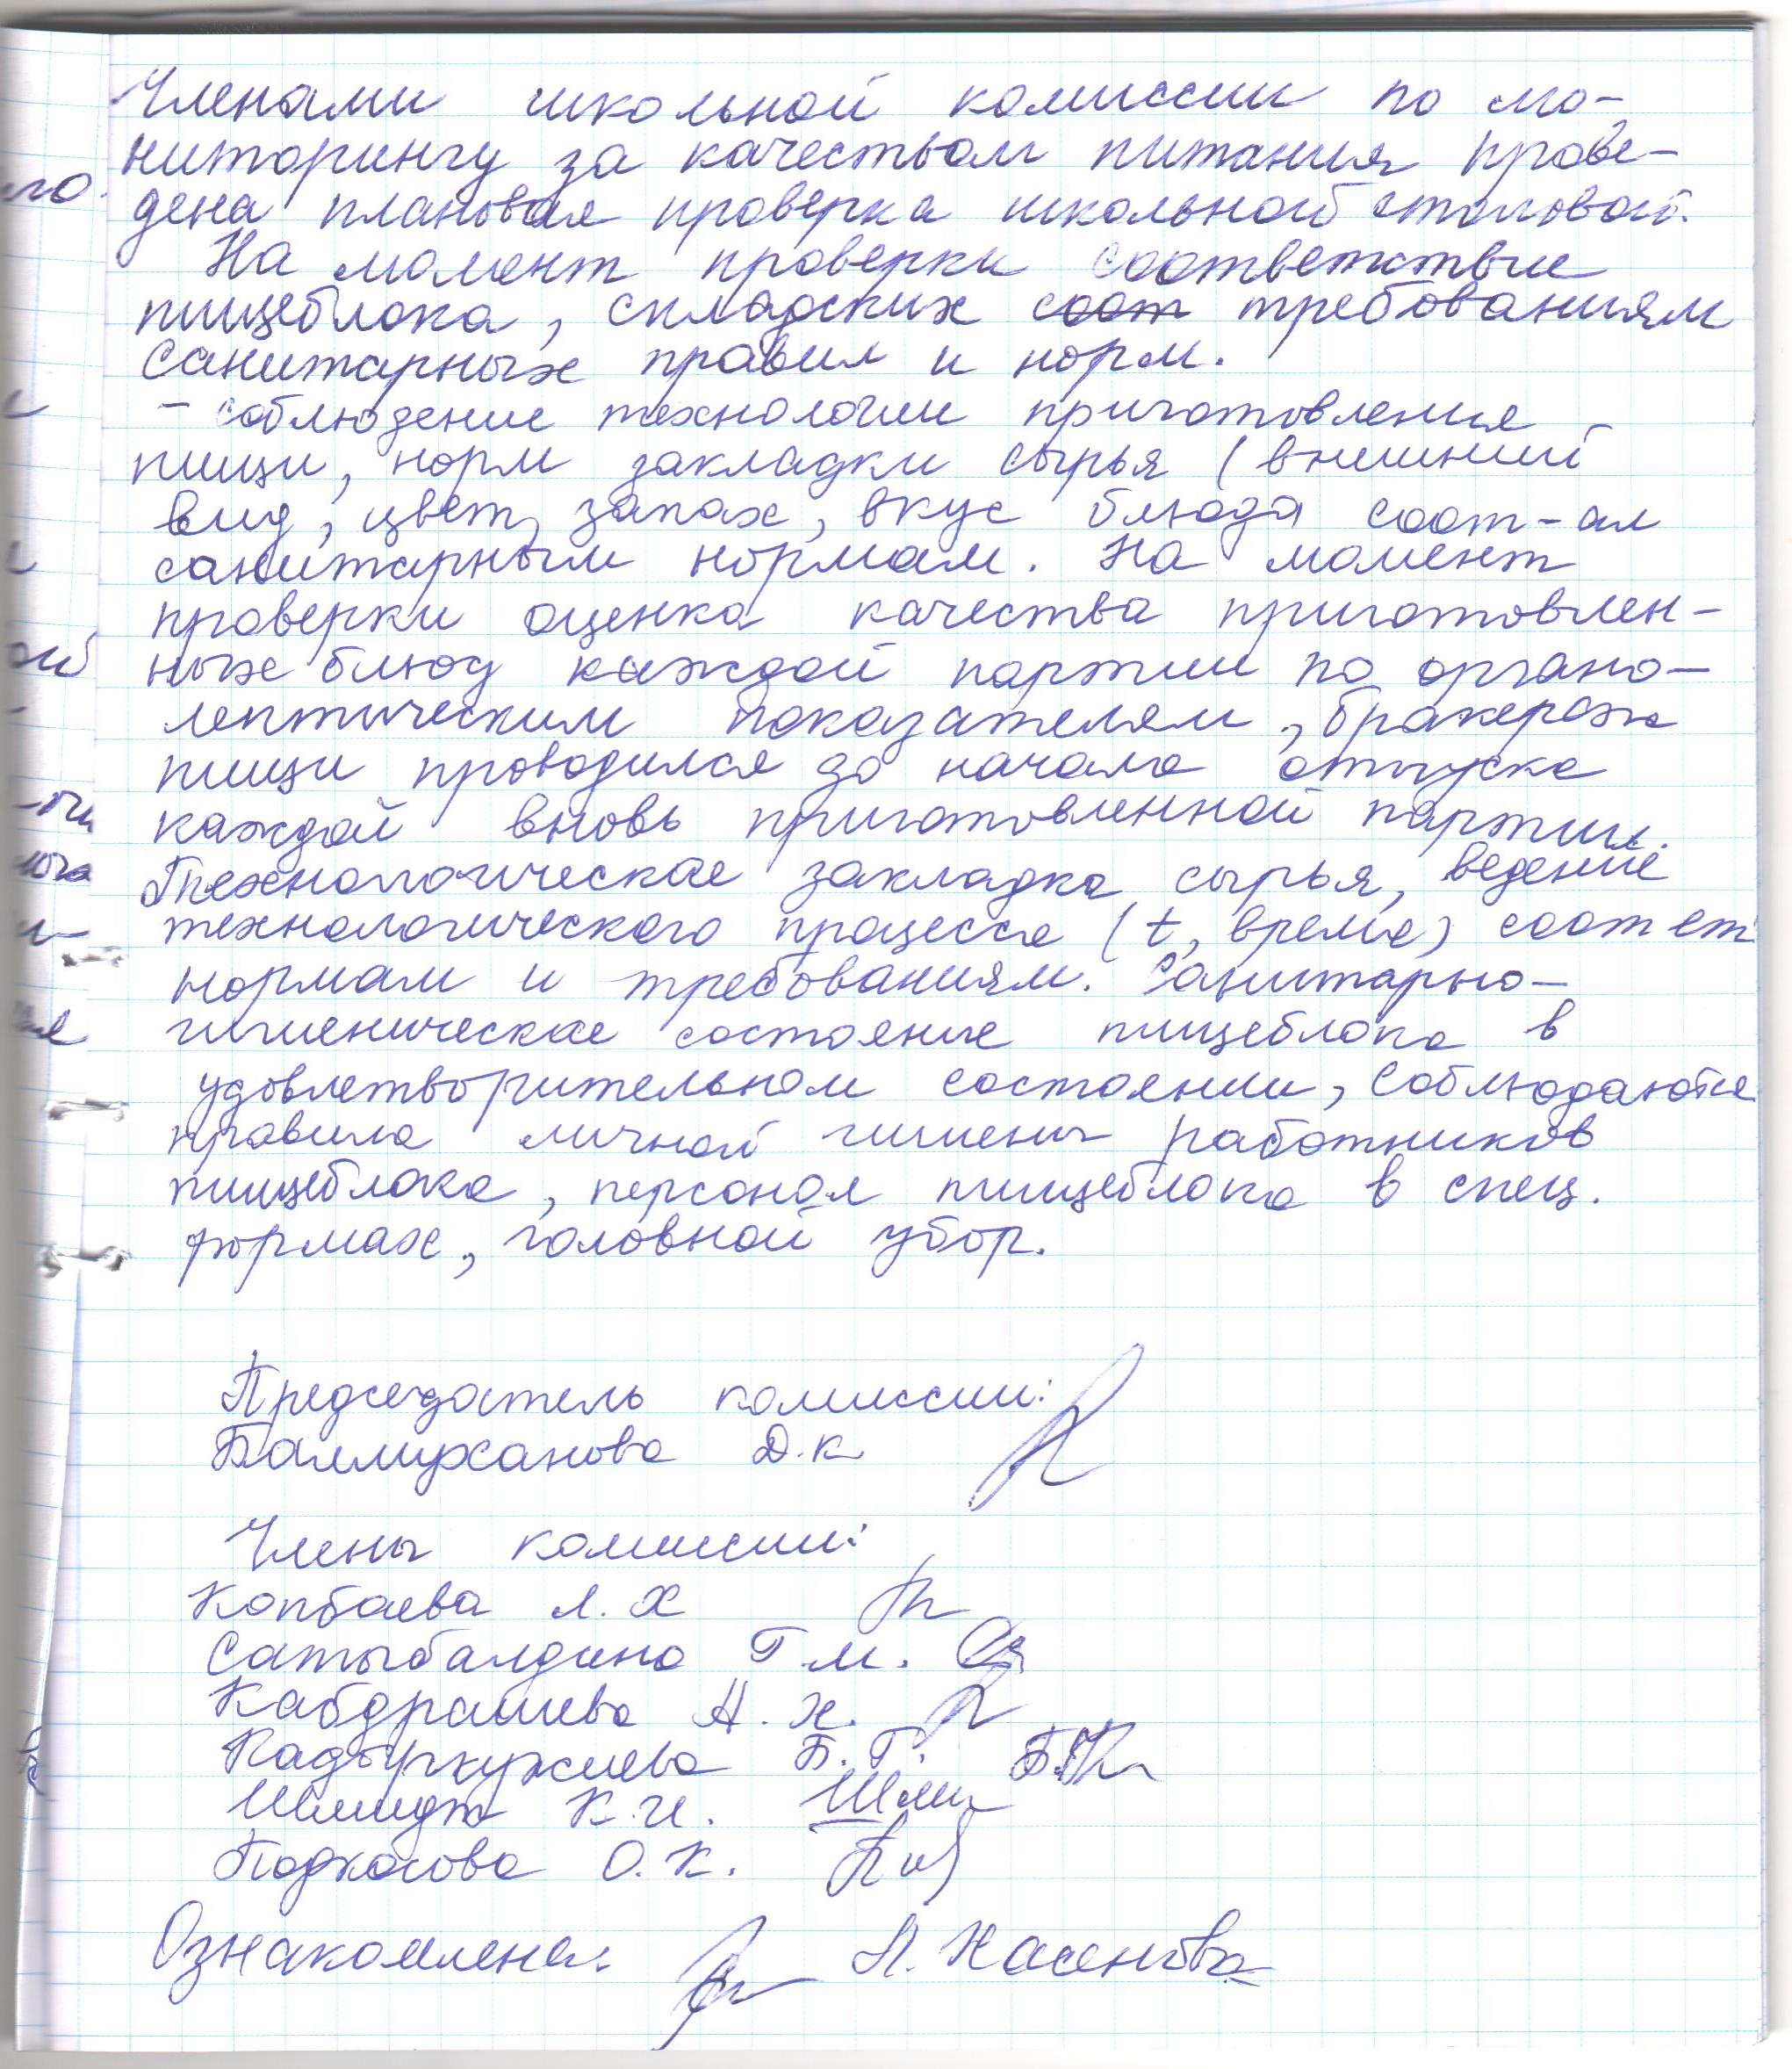 Членами школьной комиссии по мо-
ниторингу за качеством питания прове-
дена плановая проверка школьной столовой.
На момент проверки соответствие
пищеблока, складских соот требованиям
санитарных правил и норм.
- соблюдение технологии приготовления
пищи, норм закладки сырья (внешний
вид, цвет, запах, вкус блюда соот-ал
санитарным нормам. На момент
проверки оценка качества приготовлен-
ных блюд каждой партии по органо-
лептическим показателям, бракераж
пищи проводился до начала отпуска
каждой вновь приготовленной партии.
Технологическое закладка сырья, ведение
технологического процесса (t, время) соот ет
нормам и требованиям. Санитарно-
гигиеническое состояние пищеблока в
удовлетворительном состоянии, соблюдаются
правила личной гигиены работников
пищеблока, персонал пищеблока в спец.
формах, головной убор.
Председатель комиссии:
Балмуханова Д.К
Члены комиссии:
Копбаева Л.Х
Сатыбалдина Г.М.
Кабдрашева А.Х.
Кадыркужиева Б.Г.
Шмидт К.И.
Подкосова О.К.
Ознакомлена: Л. Хасенова